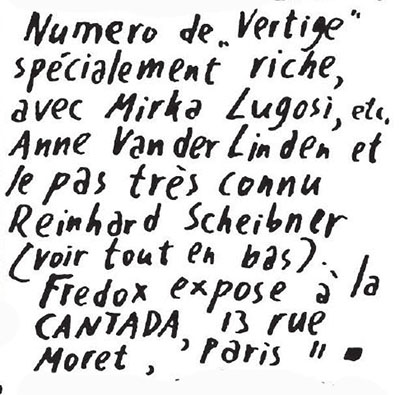 Numero de „Vertige"
spécialement riche,
avec Mirka Lugosi, etc,
Anne Van der Linden et
le pas très connu
Reinhard Scheibner
(voir tout en bas).
Fredox expose à la
CANTADA, 13 rue
Moret, Paris 11